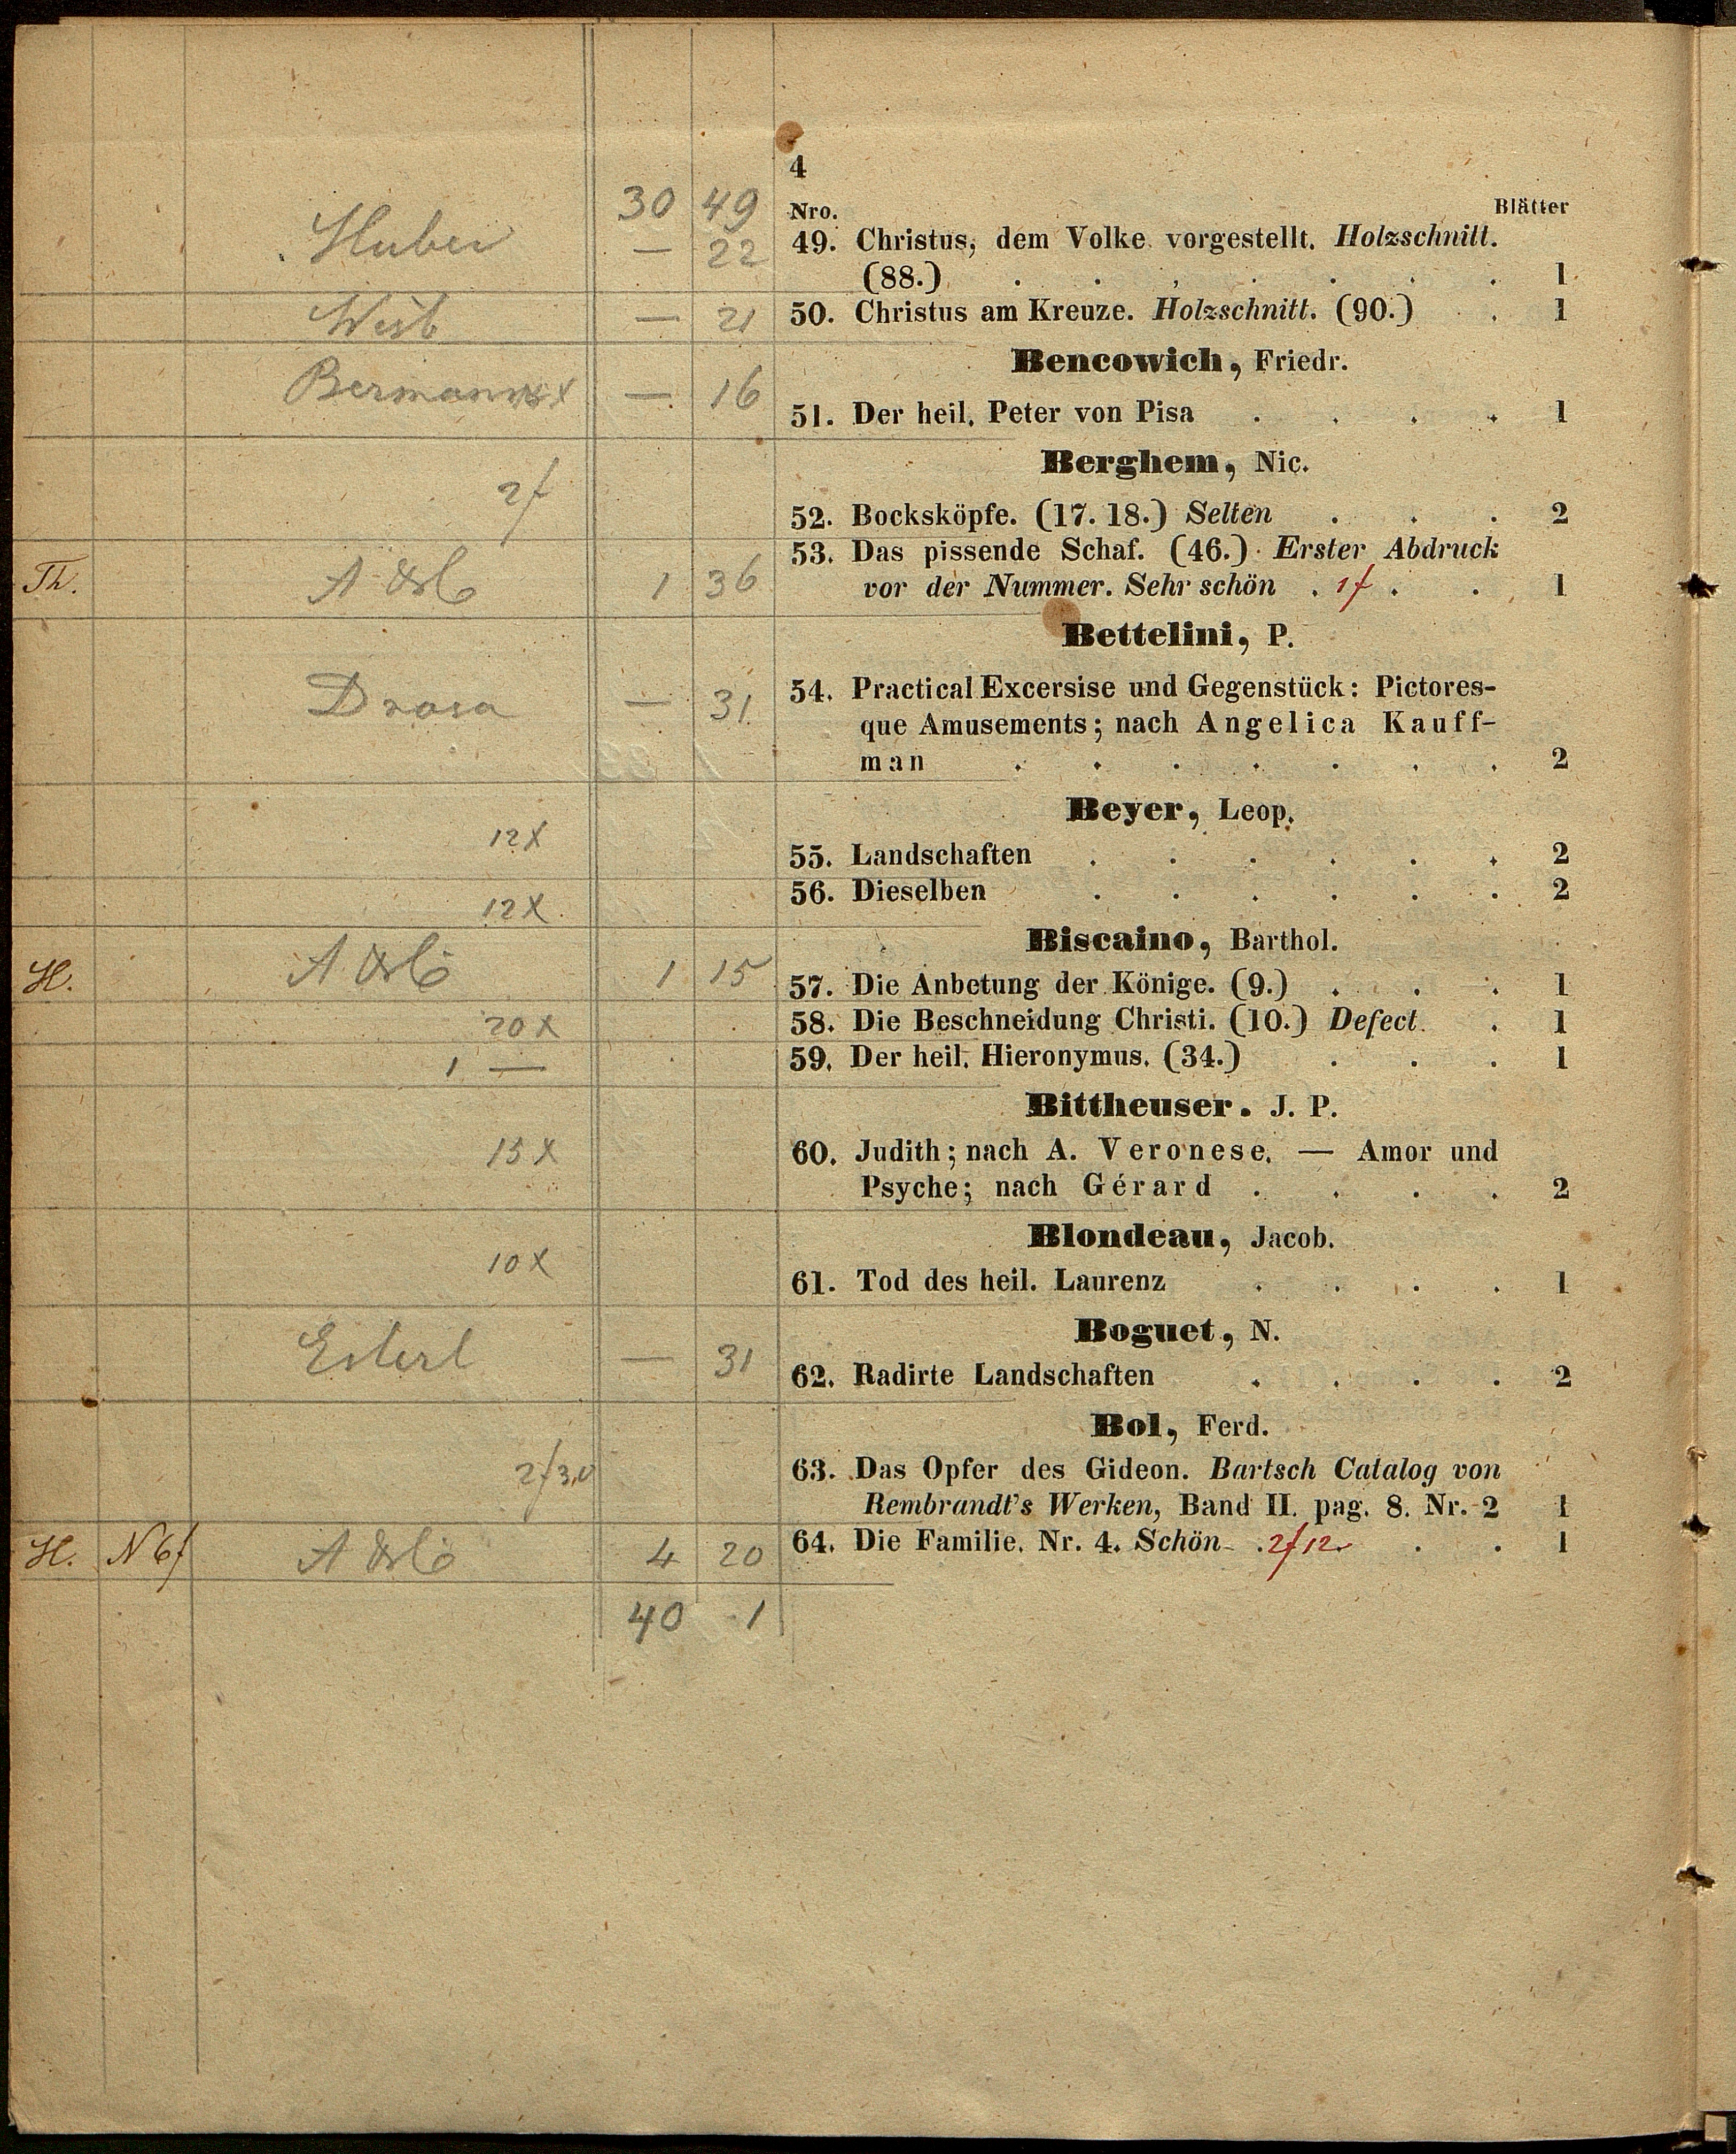 4
30 49
Nro. Blätter
Huber — 22 49. Christus, dem Volke vorgestellt. Holzschnitt.
(88.) . . . . . . . 1
— 21 50. Christus am Kreuze. Holzschnitt. (90.) . 1
Bencowich, Friedr.
Bermann — 16 51. Der heil. Peter von Pisa . . . . 1
Berghem, Nic.
2f 52. Bocksköpfe. (17. 18.) Selten . . . 2
53. Das pissende Schaf. (46.) Erster Abdruck
Th. 1 36 vor der Nummer. Sehr schön . 1f . . 1
Bettelini, P.
— 31 54. Practical Excersise und Gegenstück: Pictores-
que Amusements; nach Angelica Kauff-
man . . . . . . . 2
Beyer, Leop.
12x 55. Landschaften . . . . . . 2
12x 56. Dieselben . . . . . . 2
Biscaino, Barthol.
H. 1 15 57. Die Anbetung der Könige. (9.) . . . 1
20x 58. Die Beschneidung Christi. (10.) Defect . 1
1 — 59. Der heil. Hieronymus. (34.) . . . 1
Bittheuser. J. P.
15x 60. Judith; nach A. Veronese. — Amor und
Psyche; nach Gérard . . . . 2
Blondeau, Jacob.
10x 61. Tod des heil. Laurenz . . . . 1
Boguet, N.
— 31 62. Radirte Landschaften . . . . 2
Bol, Ferd.
2f30 63. Das Opfer des Gideon. Bartsch Catalog von
Rembrandt's Werken, Band II. pag. 8. Nr. 2 1
H. N 6f 4 20 64. Die Familie. Nr. 4. Schön . 2f12 . . 1
40 1